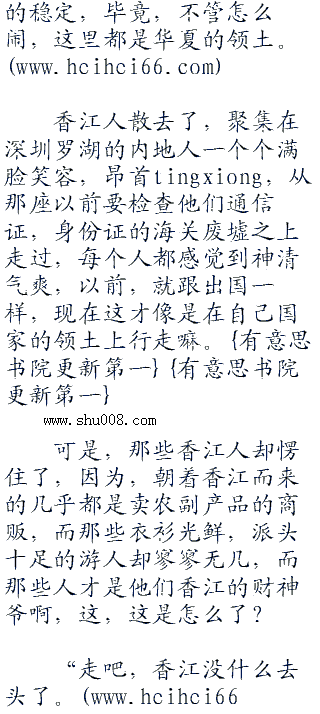 的稳定，毕竟，不管怎么
闹，这里都是华夏的领土。
(www.hcihci66.com)
香江人散去了，聚集在
深圳罗湖的内地人一个个满
脸笑容，昂首tingxiong，从
那座以前要检查他们通信
证，身份证的海关废墟之上
走过，每个人都感觉到神清
气爽，以前，就跟出国一
样，现在这才像是在自己国
家的领土上行走嘛。{有意思
书院更新第一}{有意思书院
更新第一}
www.shu008.com
可是，那些香江人却愣
住了，因为，朝着香江而来
的几乎都是卖农副产品的商
贩，而那些衣衫光鲜，派头
十足的游人却寥寥无几，而
那些人才是他们香江的财神
爷啊，这，这是怎么了？
“走吧，香江没什么去
头了。(www.hcihci66